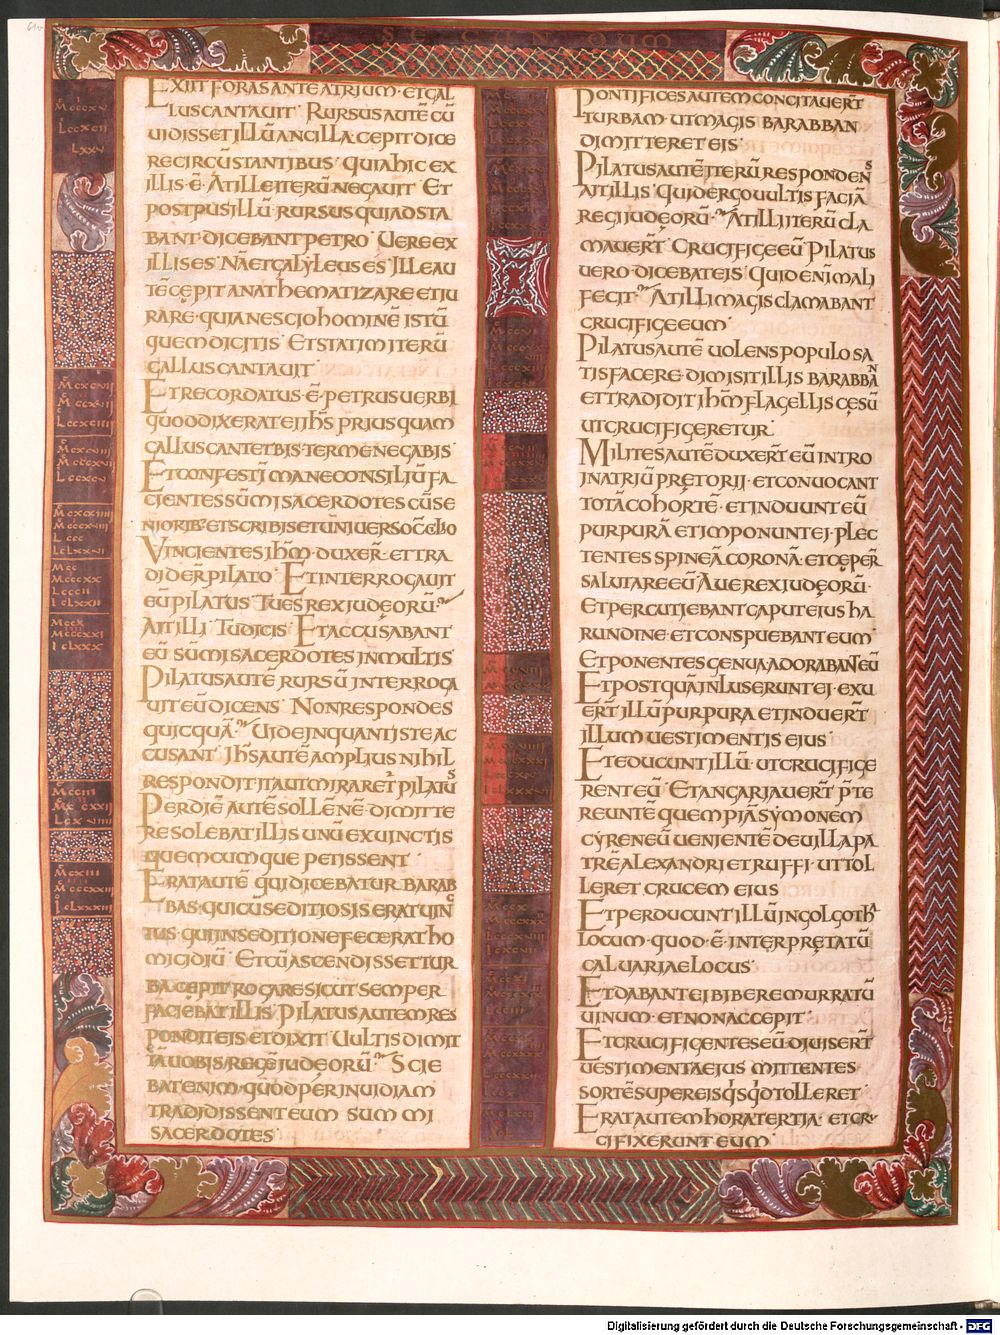 SECUNDUM
EXIIT FORAS ANTE ATRIUM · ET GAL
LUS CANTAUIT · RURSUS AUTĒ CŪ
UIDISSET ILLŪ ANCILLA · CEPIT DICE
RE CIRCŪSTANTIBUS · QUIA HIC EX
ILLIS Ē · AT ILLE ITERŪ NEGAUIT · ET
POST PUSILLŪ · RURSUS QUI ADSTA
BANT · DICEBANT PETRO · UERE EX
ILLIS ES · NĀ ET GALYLEUS ES · ILLE AU
TĒ CĘPIT ANATHEMATIZARE ET IU
RARE · QUIA NESCIO HOMINĒ ISTŪ
QUEM DICITIS · ET STATIM ITERŪ
GALLUS CANTAUIT
ET RECORDATUS · Ē · PETRUS UERBI
QUOD DIXERAT EI IHS̄ PRIUS QUAM
GALLUS CANTET BIS · TER ME NEGABIS
ET CONFESTĪ MANE CONSILIŪ FA
CIENTES SŪMI SACERDOTES CŪ SE
NIORIB; ET SCRIBIS ET ŪNIUERSO CŌCILIO
VINCIENTES IHM̄ · DUXER̄ · ET TRA
DIDER̄ PILATO · ET INTERROGAUIT
EŪ PILATUS · TU ES REX IUDĘORŪ
AT ILLI · TU DICIS · ET ACCUSABANT
EŪ SŪMI SACERDOTES IN MULTIS ·
PILATUS AUTĒ RURSŪ INTERROGA
UIT EŪ DICENS · NON RESPONDES
QUICQUĀ · UIDE IN QUANTIS TE AC
CUSANT · IHS̄ AUTĒ AMPLIUS NIHIL
RESPONDIT · ITA UT MIRARET̄ PILATUS
PER DIĒ AUTĒ SOLLĒNĒ · DIMITTE
RE SOLEBAT ILLIS UNŪ EX UINCTIS
QUEMCUMQUE PETISSENT ·
ERAT AUTĒ QUI DICEBATUR BARAB
BAS · QUI CŪ SEDITIOSIS ERAT UINC
TUS · QUI IN SEDITIONE FECERAT HO
MICIDIŪ · ET CŪ ASCENDISSET TUR
BA · CEPIT ROGARE SICUT SEMPER
FACIEBAT ILLIS · PILATUS AUTEM RES
PONDIT EIS ET DIXIT · UULTIS DIMIT
TĀ UOBIS REGĒ IUDĘORŪ · SCIE
BAT ENIM · QUOD PER INUIDIAM
TRADIDISSENT EUM SUMMI
SACERDOTES ·
PONTIFICES AUTEM CONCITAUER̄T
TURBAM · UT MAGIS BARABBAN
DIMITTERET EIS ·
PILATUS AUTĒ ITERŪ RESPONDENS
AIT ILLIS · QUID ERGO UULTIS FACIĀ
REGI IUDĘORŪ · AT ILLI ITERŪ CLA
MAUER̄T · CRUCIFIGE EŪ · PILATUS
UERO DICEBAT EIS · QUID ENĪ MALI
FECIT · AT ILLI MAGIS CLAMABANT
CRUCIFIGE EUM ·
PILATUS AUTĒ UOLENS POPULO SA
TISFACERE · DIMISIT ILLIS BARABBĀN
ET TRADIDIT IHM̄ FLAGELLIS CĘSŪ
UT CRUCIFIGERETUR ·
MILITES AUTĒ DUXER̄T EŪ INTRO
IN ATRIŪ PRETORII · ET CONUOCANT
TOTĀ COHORTĒ · ET INDUUNT EŪ
PURPURĀ · ET IMPONUNT EI · PLEC
TENTES SPINEĀ CORONĀ · ET CĘPER̄
SALUTARE EŪ · AUE REX IUDĘORŪ ·
ET PERCUTIEBANT CAPUT EIUS HA
RUNDINE · ET CONSPUEBANT EUM ·
ET PONENTES GENUA · ADORABANT EŪ
ET POSTQUĀ INLUSERUNT EI · EXU
ER̄T ILLŪ PURPURA · ET INDUER̄T
ILLUM UESTIMENTIS EIUS ·
ET EDUCUNT ILLŪ · UT CRUCIFIGE
RENT EŪ · ET ANGARIAUER̄T P̄TE
REUNTĒ QUEMPIĀ SYMONEM
CYRENEŪ UENIENTĒ DE UILLA · PA
TRĒ ALEXANDRI ET RUFFI · UT TOL
LERET CRUCEM EIUS
ET PERDUCUNT ILLŪ IN GOLGOTHA
LOCUM · QUOD · Ē · INTERPRETATŪ
CALUARIAE LOCUS ·
ET DABANT EI BIBERE MURRATŪ
UINUM · ET NON ACCEPIT ·
ET CRUCIFIGENTES EŪ · DIUISER̄T
UESTIMENTA EIUS MITTENTES
SORTĒ SUPER EIS Q̇S QD̄ TOLLERET ·
ERAT AUTEM HORA TERTIA · ET CRU
CIFIXERUNT EUM ·
Digitalisierung gefördert durch die Deutsche Forschungsgemeinschaft - DFG